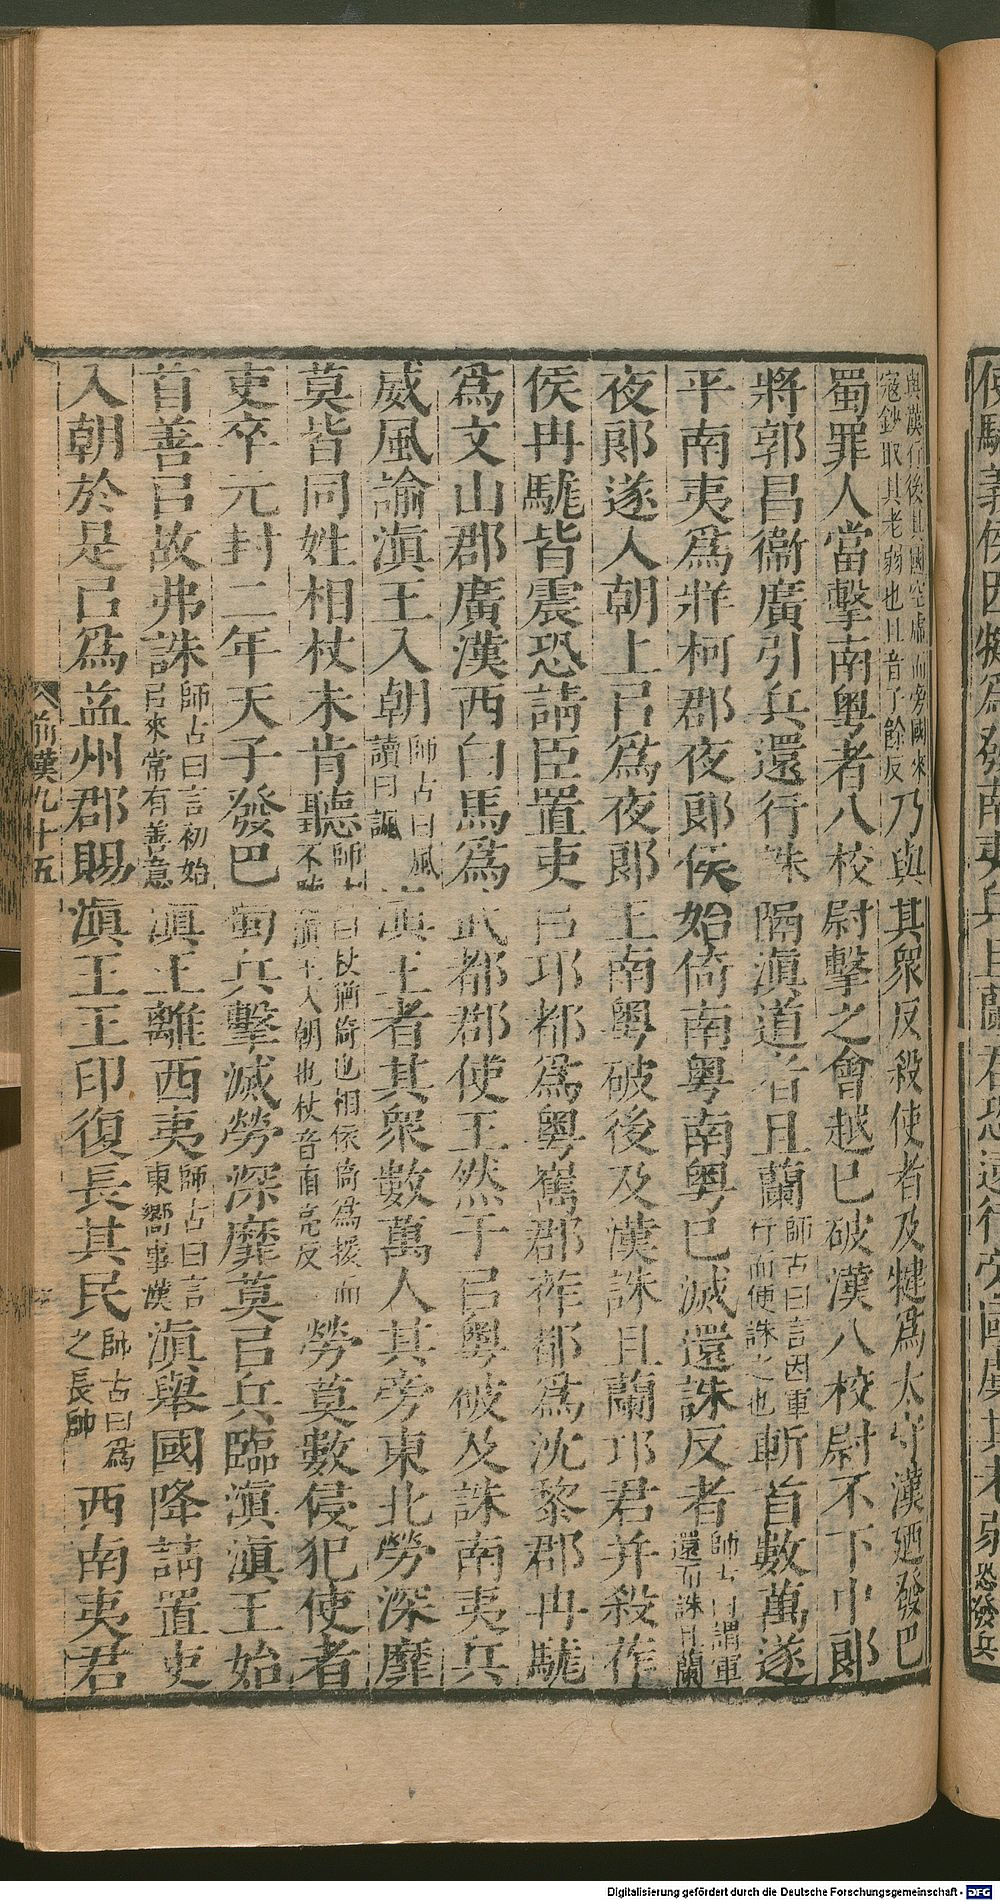 使馳義侯因犍為發南夷兵且蘭君恐遠行旁國虜其老弱恐發兵
與漢行後其國空虛而旁國來寇鈔取其老弱也且音子餘反乃與其眾反殺使者及犍為太守漢廼發巴
蜀罪人當擊南粵者八校尉擊之會越已破漢八校尉不下中郎
將郭昌衞廣引兵還行誅隔滇道者且蘭師古曰言因軍行而便誅之也斬首數萬遂
平南夷爲牂柯郡夜郎侯始倚南粵南粵已滅還誅反者師古曰謂軍還而誅且蘭
夜郎遂入朝上㠯爲夜郎王南粵破後及漢誅且蘭邛君并殺莋
侯冉駹皆震恐請臣置吏㠯邛都爲粵巂郡莋都爲沈黎郡冉駹
爲文山郡廣漢西白馬爲武都郡使王然于㠯粵破及誅南夷兵
威風諭滇王入朝師古曰風讀曰諷滇王者其眾數萬人其旁東北勞深靡
莫皆同姓相杖未肯聽師古曰杖猶倚也相依倚爲援而不聽滇王入朝也杖音直亮反勞莫數侵犯使者
吏卒元封二年天子發巴蜀兵擊滅勞深靡莫㠯兵臨滇滇王始
首善㠯故弗誅師古曰言初始㠯來常有善意滇王離西夷師古曰言東嚮事漢滇舉國降請置吏
入朝於是㠯爲益州郡賜滇王王印復長其民師古曰爲之長帥西南夷君
前漢九十五
Digitalisierung gefördert durch die Deutsche Forschungsgemeinschaft - DFG